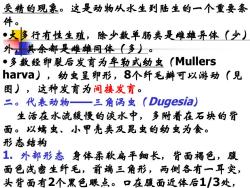 受精的现象。这是动物从水生到陆生的一个重要条
件。
•大多行有性生殖，除少数单肠类是雌雄异体（少）
外，其余都是雌雄同体（多）。
•多数经卵裂后发育为牟勒式幼虫（Mullers
harva），幼虫呈卵形，8个纤毛瓣可以游动（见
图），这种发育为间接发育。
二。代表动物——三角涡虫（Dugesia）
生活在水流缓慢的淡水中，多附着在石块的背
面。以蠕虫、小甲壳类及昆虫的幼虫为食。
形态结构
1．外部形态 身体柔软扁平细长，背面褐色，腹
面色浅密生纤毛，前端三角形，两侧各有一耳突，
头背面有2个黑色眼点。口在腹面近体后1/3处，